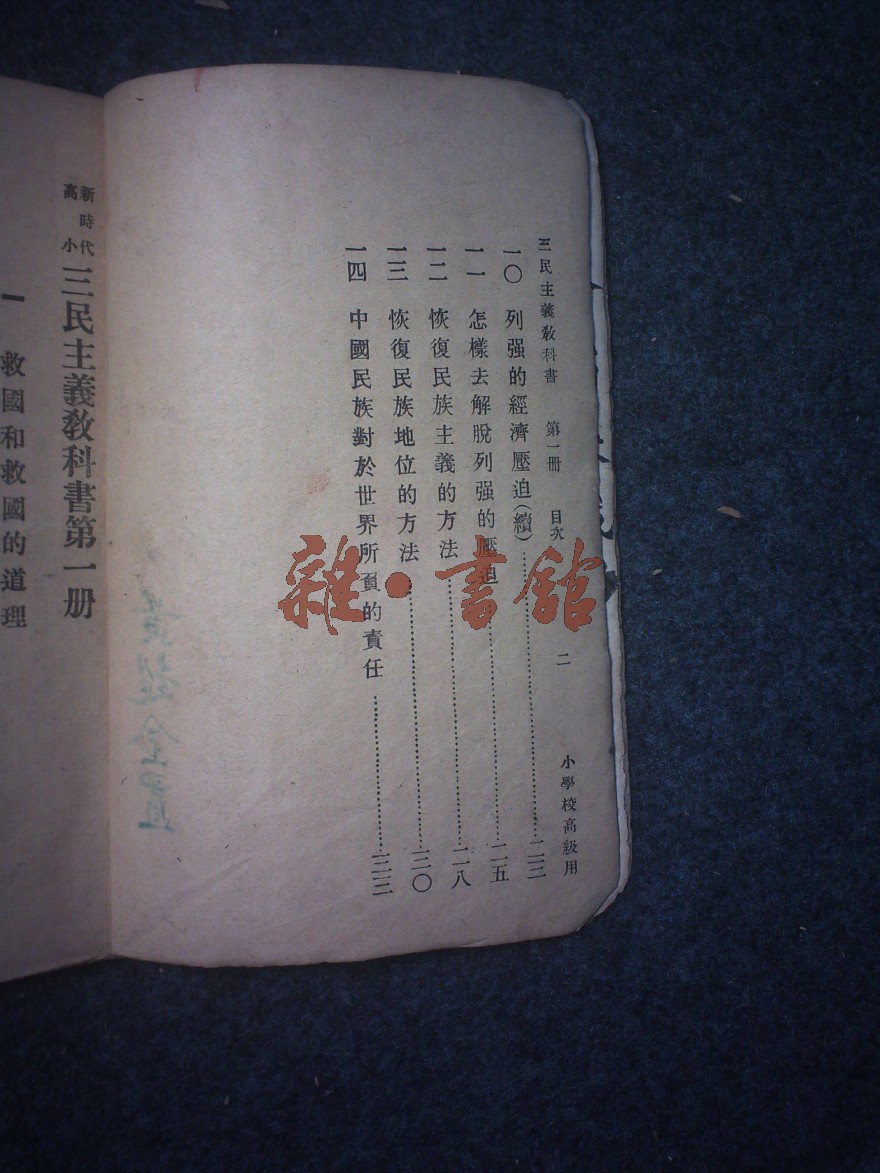 三民主義教科書 第一冊 目次 二 小學校高級用
一〇 列强的經濟壓迫(續)……二三
一一 怎樣去解脫列强的壓迫……二五
一二 恢復民族主義的方法……二八
一三 恢復民族地位的方法……三〇
一四 中國民族對於世界所負的責任……三三
新時代
高小
三民主義教科書第一册
一 救國和救國的道理
雜·書館